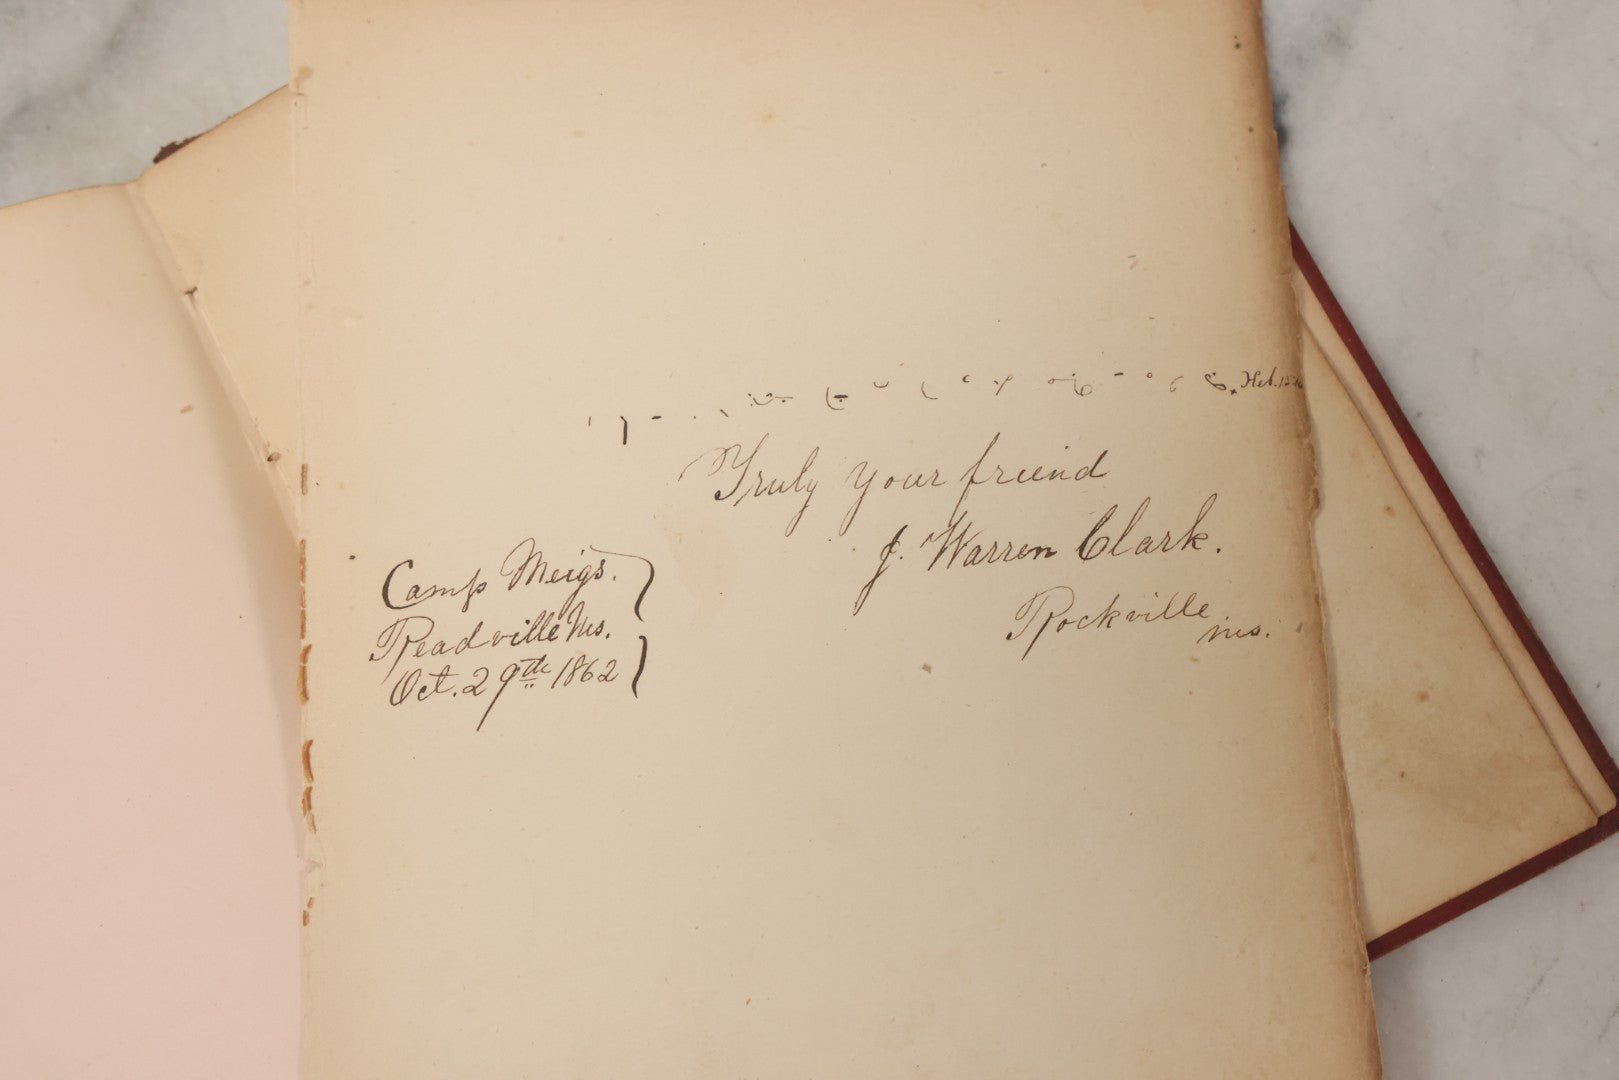 Truly your friend
J. Warren Clark.
Rockville
Ms.
Camp Meigs.
Readville Ms.
Oct. 29th 1862